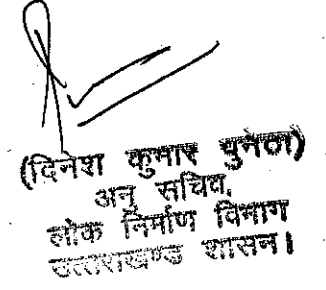 (दिनेश कुमार पुनेठा)
अनु सचिव,
लोक निर्माण विभाग
उत्तराखण्ड शासन।